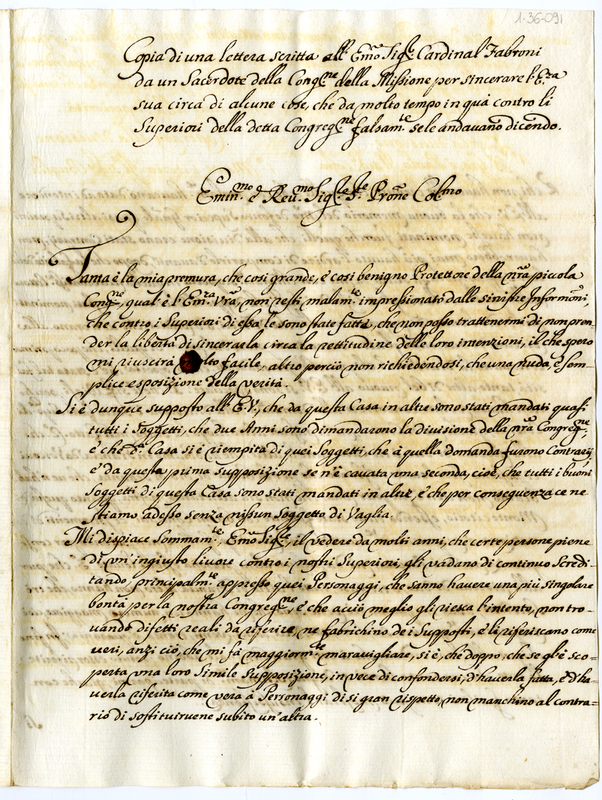 1-36-091
Copia di una lettera scritta all' Em̃o Sig.r Cardinal Fabroni
da un Sacerdote della Congne della Missione per sincerare l'Emza
sua circa di alcune cose, che da molto tempo in quà contro li
Superiori della detta Congregne falsamte se le andavano dicendo.
Eminmo e Reumo Sigre Prõne Colmo
Tanta è la mia premura, che così grande, e così benigno Protettore della nr̃a piccola
Congne, qual' è l'Emza Vrã, non resti malamte impressionato dalle sinistre Informoni,
che contro i Superiori di essa le sono state fatte, che non posso trattenermi di non pren=
der la libertà di sincerarla circa la rettitudine delle loro intenzioni, il che spero
mi riuscirà molto facile, altro perciò non richiedendosi, che una nuda, e sem=
plice esposizione della verità.
Si è dunque supposto all' E.V., che da questa Casa in altre sono stati mandati quasi
tutti i Soggetti, che due Anni sono dimandarono la divisione della nr̃a Congregne,
e che d.a Casa si è riempita di quei Soggetti, che à quella domanda furono Contrarij,
e da questa prima supposizione se n'è cavata una seconda, cioè, che tutti i buoni
Soggetti di questa Casa sono stati mandati in altre, e che per conseguenza ce ne
stiamo adesso senza nissun Soggetto di Vaglia.
Mi dispiace Sommamte, Em̃o Sigre, il vedere da molti anni, che certe persone piene
di un' ingiusto livore contro i nostri Superiori, gli vadano di continuo Scredi=
tando, principalmte appresso quei Personaggi, che sanno havere una più singolare
bontà per la nostra Congregne, e che acciò meglio gli riesca l'intento, non tro=
vando difetti reali da riferire, ne fabrichino dei Supposti, e li riferiscano come
veri, anzi ciò, che mi fà maggiormte maravigliare, si è, che doppo, che se gl'è sco=
perta una loro Simile Supposizione, in vece di confondersi, d'haverla fatta, e d'ha=
verla riferita come vera à Personaggi di sì gran rispetto, non manchino al contra=
rio di sostituirvene subito un'altra.